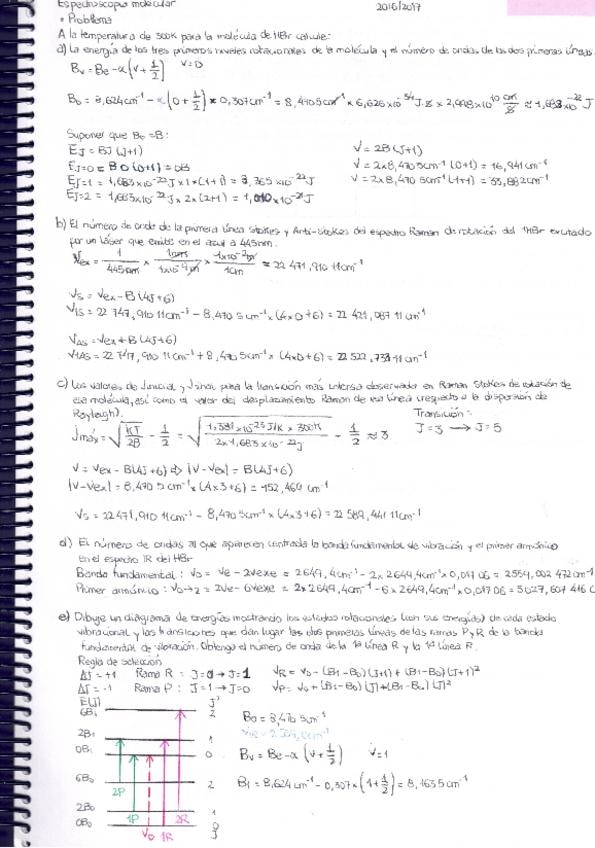 Espectroscopía molecular 2016/2017
• Problema
A la temperatura de 300K para la molécula de HBr calcule:
a) La energía de los tres primeros niveles rotacionales de la molécula y el número de ondas de las dos primeras líneas.
Bv = Be - α(v + 1/2) v=0
B0 = 8,624cm⁻¹ - α(0 + 1/2) × 0,307cm⁻¹ = 8,4705cm⁻¹ × 6,626×10⁻³⁴ J·s × 2,998×10¹⁰ cm/s ≈ 1,683×10⁻²² J
Suponer que B0 = B:
EJ = BJ(J+1) V = 2B(J+1)
EJ=0 = B0(0+1) = 0B V = 2×8,4705cm⁻¹(0+1) = 16,941cm⁻¹
EJ=1 = 1,683×10⁻²² J × 1 × (1+1) = 3,365×10⁻²² J V = 2×8,4705cm⁻¹(1+1) = 33,882cm⁻¹
EJ=2 = 1,683×10⁻²² J × 2 × (2+1) = 1,010×10⁻²¹ J
b) El número de onda de la primera línea Stokes y Anti-stokes del espectro Raman de rotación del HBr excitado
por un láser que emite en el azul a 445nm.
Vex = 1/445nm × 1nm/1×10⁻⁹m × 1×10⁻²m/1cm ≈ 22 471,910 11cm⁻¹
Vs = Vex - B(4J+6)
V1S = 22 747,910 11cm⁻¹ - 8,4705cm⁻¹ × (4×0+6) = 22 421,087 11 cm⁻¹
VAS = Vex + B(4J+6)
V1AS = 22 747,910 11cm⁻¹ + 8,4705cm⁻¹ × (4×0+6) = 22 522,733 11 cm⁻¹
c) Los valores de Jinicial y Jfinal para la transición más intensa observada en Raman Stokes de rotación de
esa molécula, así como el valor del desplazamiento Raman de esa línea (respecto a la dispersión de
Rayleigh). Transición:
Jmáx = √(KT/2B) - 1/2 = √(1,381×10⁻²³ J/K × 300K / 2×1,683×10⁻²² J) - 1/2 ≈ 3 J=3 → J=5
V = Vex - B(4J+6) ⇒ |V-Vex| = B(4J+6)
|V-Vex| = 8,4705cm⁻¹ × (4×3+6) = 152,469 cm⁻¹
Vs = 22 471,910 11cm⁻¹ - 8,4705cm⁻¹ × (4×3+6) = 22 589,441 11 cm⁻¹
d) El número de ondas al que aparecen centrada la banda fundamental de vibración y el primer armónico
en el espectro IR del HBr
Banda fundamental: V0 = Ve - 2Vexe = 2649,4cm⁻¹ - 2×2649,4cm⁻¹×0,01706 = 2559,002 472cm⁻¹
Primer armónico: V0→2 = 2Ve - 6Vexe = 2×2649,4cm⁻¹ - 6×2649,4cm⁻¹×0,01706 = 5027,607 416 c
e) Dibuje un diagrama de energías mostrando los estados rotacionales (con sus energías) de cada estado
vibracional y las transiciones que dan lugar las dos primeras líneas de las ramas P y R de la banda
fundamental de vibración. Obtenga el número de onda de la 1ª línea R y la 1ª línea P.
Regla de selección
ΔJ = +1 Rama R: J=0 → J=1 VR = V0 - (B1-B0)(J+1) + (B1-B0)(J+1)²
ΔJ = -1 Rama P: J=1 → J=0 VP = V0 + (B1-B0)(J) + (B1-B0)(J)²
E(J) J'
6B1 2 B0 = 8,4705cm⁻¹
2B1 1 Bv = Be - α(v + 1/2) v=1
0B1 0
6B0 2 B1 = 8,624cm⁻¹ - 0,307×(1 + 1/2) = 8,1635cm⁻¹
2P
2B0 1P 2R 1
0B0 V0 1R 0
J